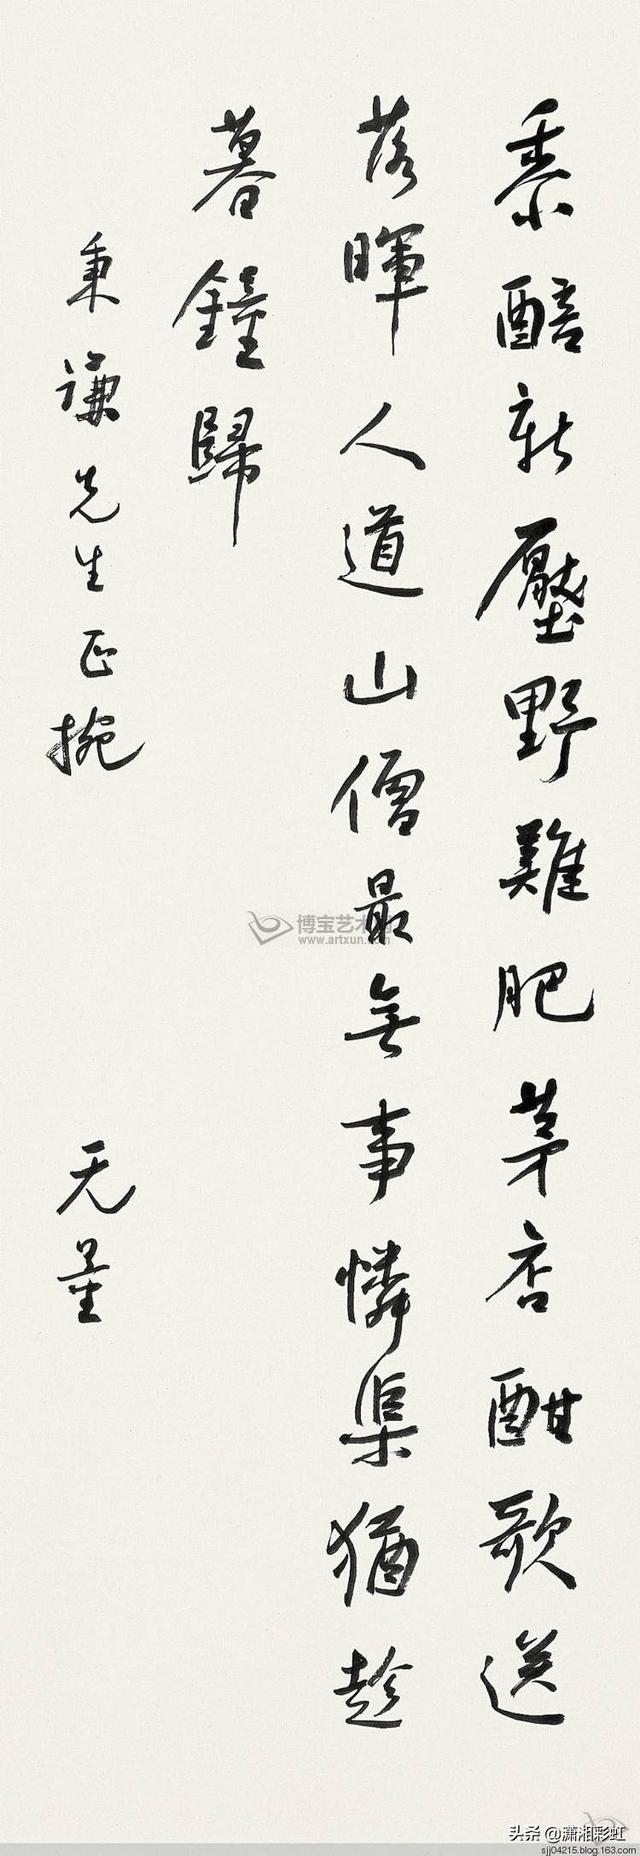 黍醅新壓野雞肥茅店酣歌送
落暉人道山僧最無事憐渠猶趁
暮鐘歸
秉謙先生正捥
无量
博宝艺术网
www.artxun.com
头条@潇湘彩虹
sjj04215.blog.163.com